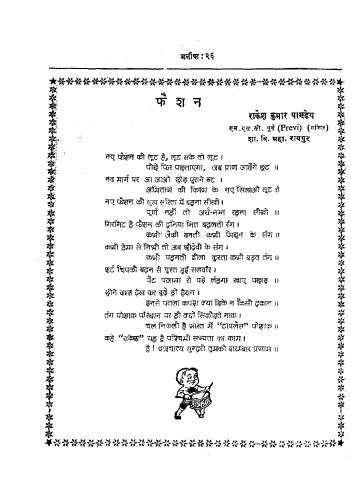 फैशन
राकेश कुमार पाण्डेय
एम. एस. सी. पूर्व (Previ) (गणित)
शा. वि. महा. रायपुर
नए फैशन की लूट है, लूट सके तो लूट।
पीछे फिर पछताएगा, जब प्राण जायेंगे छूट॥
नव मार्ग पर आ जाओ छोड़ पुराने रूट।
अमिताभ की किस्म के नए सिलाओ सूट॥
नए फैशन की सरिता में बहना सीखो।
पूर्ण नहीं तो अर्ध-नग्न रहना सीखो॥
गिरगिट है फैशन की दुनिया नित बदलती रंग।
कभी जैकी बनती कभी मिथुन के संग॥
कभी हेमा से मिलती तो अब श्रीदेवी के संग।
कभी पहनती ढीला कुरता कभी बहुत तंग॥
शर्ट चिपकी बदन से चुस्त हुई सलवार।
पेंट पजामा रो पड़े लहंगा खाए पछाड़॥
झीने वस्त्र देख कर बूढ़े हों हैरान।
इनसे पतला कपड़ा क्या बिके न किसी दुकान॥
तंग पोशाक परिधान पर ही क्यों सिकोड़ते नाक।
चल निकली है भारत में "टापलेस" पोशाक॥
कहे "राकेश" यह है पश्चिमी सभ्यता का काम।
हे! पाश्चात्य सुन्दरी तुमको बारम्बार प्रणाम॥